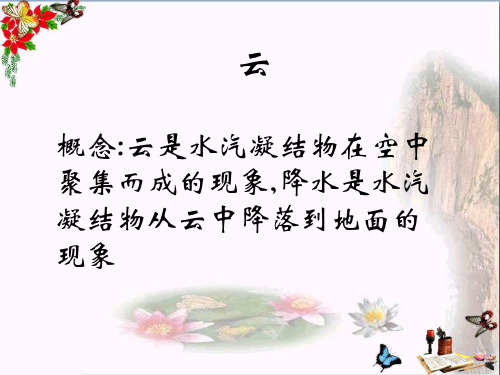 云
概念:云是水汽凝结物在空中
聚集而成的现象,降水是水汽
凝结物从云中降落到地面的
现象